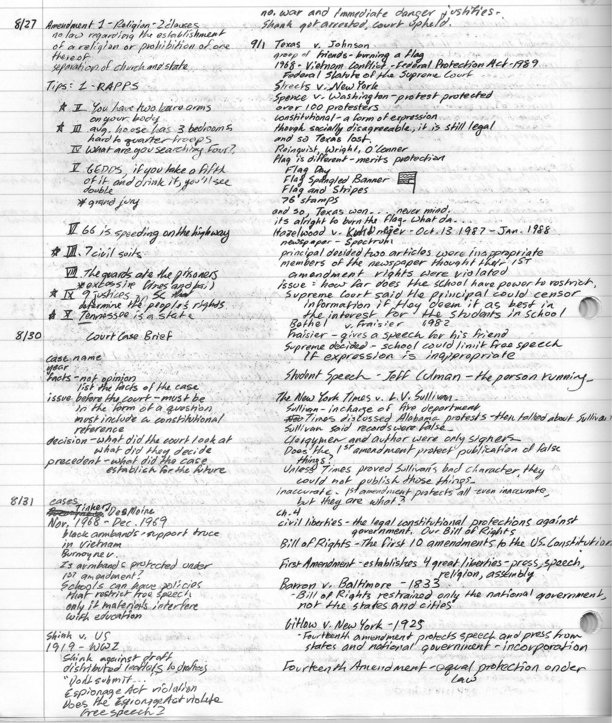 8/27 Amendment 1 - Religion - 2 clauses
no law regarding the establishment
of a religion or prohibition of one
thereof
separation of church and state
Tips: 1 - RAPPS
★ II You have two bare arms
on your body
★ III avg. house has 3 bedrooms
hard to quarter troops
IV What are you searching four?
V GEDDS, if you take a fifth
of it and drink it, you'll see
double
* grand jury
VI 66 is speeding on the highway
★ VII 7 civil suits
VIII The guards ate the prisoners
* excessive fines and bail
★ IX 9 justices in SC
determine the people's rights
★ X Tennessee is a state
8/30 Court Case Brief
case name
year
facts - not opinion
list the facts of the case
issue before the court - must be
in the form of a question
must include a constitutional
reference
decision - what did the court look at
what did they decide
precedent - what did the case
establish for the future
8/31 cases
Tinker v. Des Moine
Nov. 1968 - Dec. 1969
black armbands - support truce
in Vietnam
Burnoy ne v.
Is armbands protected under
1st amendment?
Schools can have policies
that restrict free speech
only if materials interfere
with education
Shink v. US
1919 - WWI
Shink against draft
distributed leaflets to draftees
"Don't submit...
Espionage Act violation
Does the Espionage Act violate
free speech?
no. war and immediate danger justifies.
Shank got arrested, court upheld.
9/1 Texas v. Johnson
group of friends - burning a flag
1968 - Vietnam Conflict - Federal Protection Act - 1989
Federal Statute of the Supreme Court
Streets v. New York
Spence v. Washington - protest protected
over 100 protesters
constitutional - a form of expression
though socially disagreeable, it is still legal
and so Texas lost.
Reinquist, Wright, O'Conner
flag is different - merits protection
Flag Day
Flag Spangled Banner
Flag and Stripes
76 stamps
and so, Texas won... never mind,
its alright to burn the flag. What da...
Hazelwood v. Kuhlmeier - Oct. 13 1987 - Jan. 1988
newspaper - Spectrum
principal decided two articles were inappropriate
members of the newspaper thought their 1ST
amendment rights were violated
issue: how far does the school have power to restrict,
Supreme Court said the principal could censor
information if they deem it as best in
the interest for the students in school
Bethel v. Fraisier 1982
Fraisier - gives a speech for his friend
Supreme decided - school could limit free speech
if expression is inappropriate
Student Speech - Jeff Culman - the person running
The New York Times v. L.V. Sullivan
Sullivan - in charge of fire department
Times discussed Alabama protests - then talked about Sullivan
Sullivan said records were false
Clergymen and author were only signers
Does the 1st amendment protect publication of false
things?
Unless Times proved Sullivan's bad character, they
could not publish those things.
inaccurate. 1st amendment protects all - even inaccurate,
but they are what?
ch. 4
civil liberties - the legal constitutional protections against
government. Our Bill of Rights
Bill of Rights - The first 10 amendments to the US Constitution
First Amendment - establishes 4 great liberties - press, speech,
religion, assembly
Barron v. Baltimore - 1833
- Bill of Rights restrained only the national government,
not the states and cities
Gitlow v. New York - 1925
- Fourteenth amendment protects speech and press from
states and national government - incorporation
Fourteenth Amendment - equal protection under
law